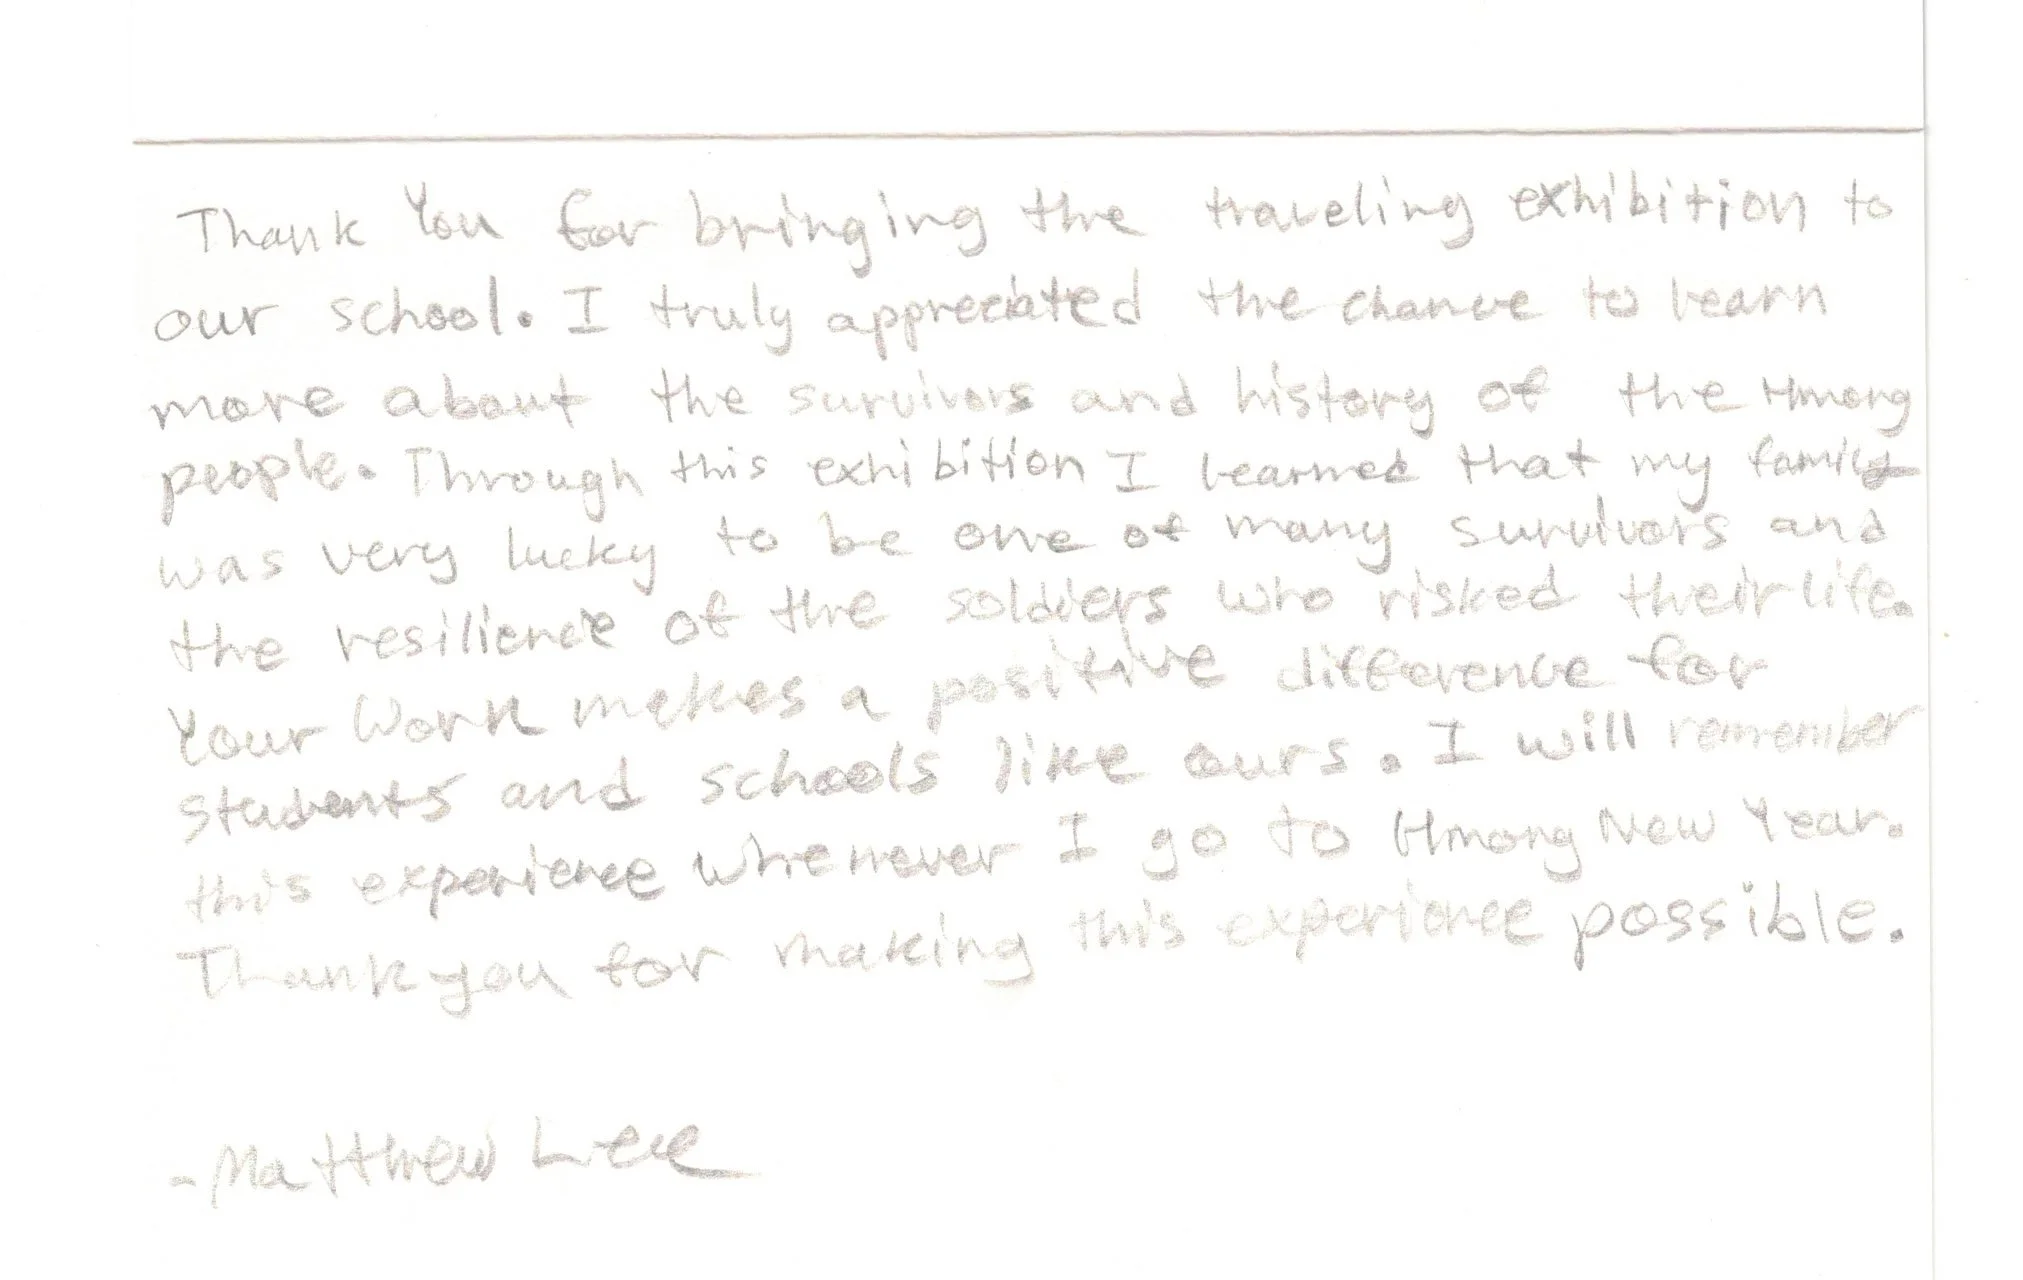 Thank You for bringing the traveling exhibition to
our school. I truly appreciated the chance to learn
more about the survivors and history of the Hmong
people. Through this exhibition I learned that my family
was very lucky to be one of many survivors and
the resilience of the soldiers who risked their life.
Your work makes a positive difference for
students and schools like ours. I will remember
this experience whenever I go to Hmong New Year.
Thank you for making this experience possible.
-Matthew Lee